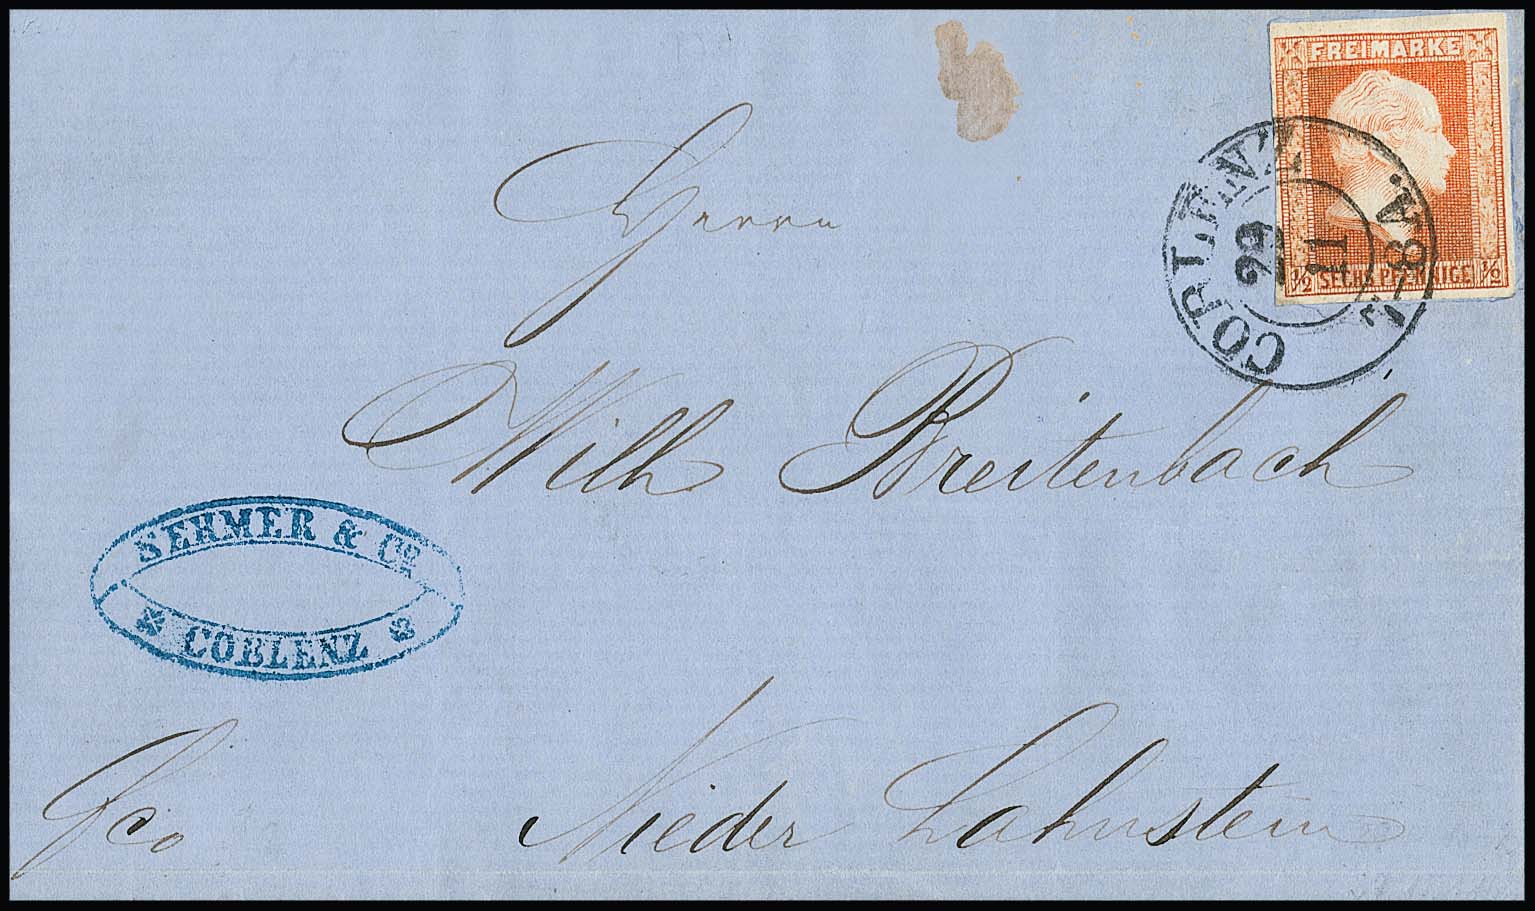 FREIMARKE
1/2 SECHS PFENNIGE 1/2
COBLENZ
11
7-8 A.
Herrn
Wilh Breitenbach
SEHMER & Co.
COBLENZ
fco
Nieder Lahnstein